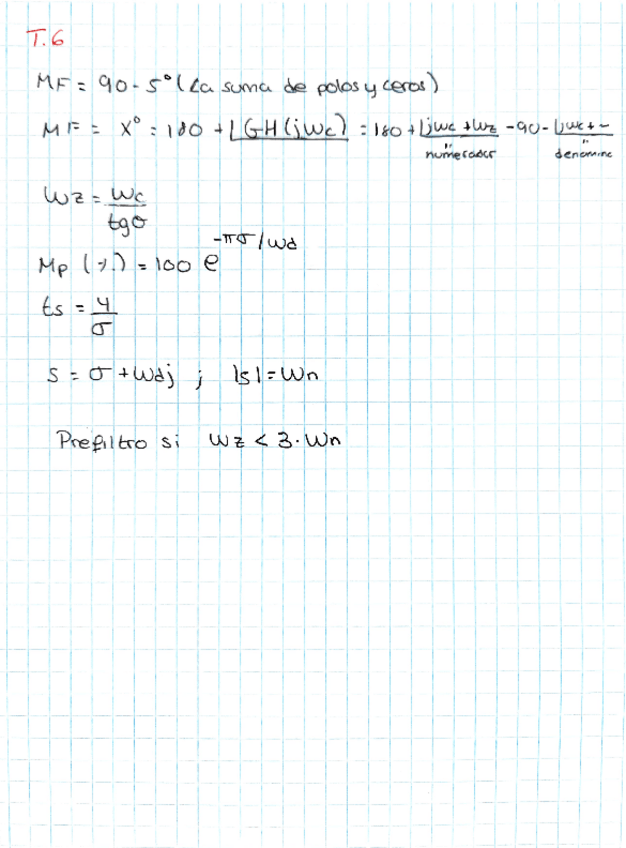 T.6
MF = 90 - 5° (La suma de polos y ceros)
MF = X° = 180 + ∠GH(jwc) = 180 + ∠jwc + wz - 90 - ∠jwc + -
" numerador " denomina
wz = wc / tgσ
Mp (%) = 100 e^(-πσ/wd)
ts = 4/σ
s = σ + wdj ; |s| = wn
Prefiltro si wz < 3·wn